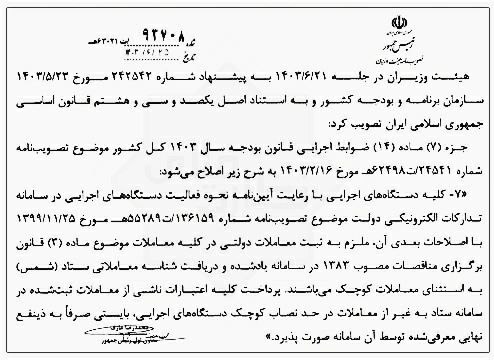 جمهوری اسلامی ایران
رئیس جمهور
تصویب نامه هیئت وزیران
شماره ۹۳۷۰۸/ت۶۳۰۲۱هـ
تاریخ ۱۴۰۳/۶/۲۵
هیئت وزیران در جلسه ۱۴۰۳/۶/۲۱ به پیشنهاد شماره ۲۴۲۵۴۲ مورخ ۱۴۰۳/۵/۲۳
سازمان برنامه و بودجه کشور و به استناد اصل یکصد و سی و هشتم قانون اساسی
جمهوری اسلامی ایران تصویب کرد:
جزء (۷) ماده (۱۴) ضوابط اجرایی قانون بودجه سال ۱۴۰۳ کل کشور موضوع تصویب‌نامه
شماره ۲۴۵۴۱/ت۶۲۴۹۸هـ مورخ ۱۴۰۳/۲/۱۶ به شرح زیر اصلاح می‌شود:
«۷- کلیه دستگاه‌های اجرایی با رعایت آیین‌نامه نحوه فعالیت دستگاه‌های اجرایی در سامانه
تدارکات الکترونیکی دولت موضوع تصویب‌نامه شماره ۱۳۶۱۵۹/ت۵۵۲۸۹هـ مورخ ۱۳۹۹/۱۱/۲۵
با اصلاحات بعدی آن، ملزم به ثبت معاملات دولتی در کلیه معاملات موضوع ماده (۳) قانون
برگزاری مناقصات مصوب ۱۳۸۳ در سامانه یادشده و دریافت شناسه معاملاتی ستاد (شمس)
به استثنای معاملات کوچک می‌باشند. پرداخت کلیه اعتبارات ناشی از معاملات ثبت‌شده در
سامانه ستاد به غیر از معاملات در حد نصاب کوچک دستگاه‌های اجرایی، بایستی صرفاً به ذینفع
نهایی معرفی‌شده توسط آن سامانه صورت پذیرد.»
محمدرضا عارف
معاون اول رئیس جمهور